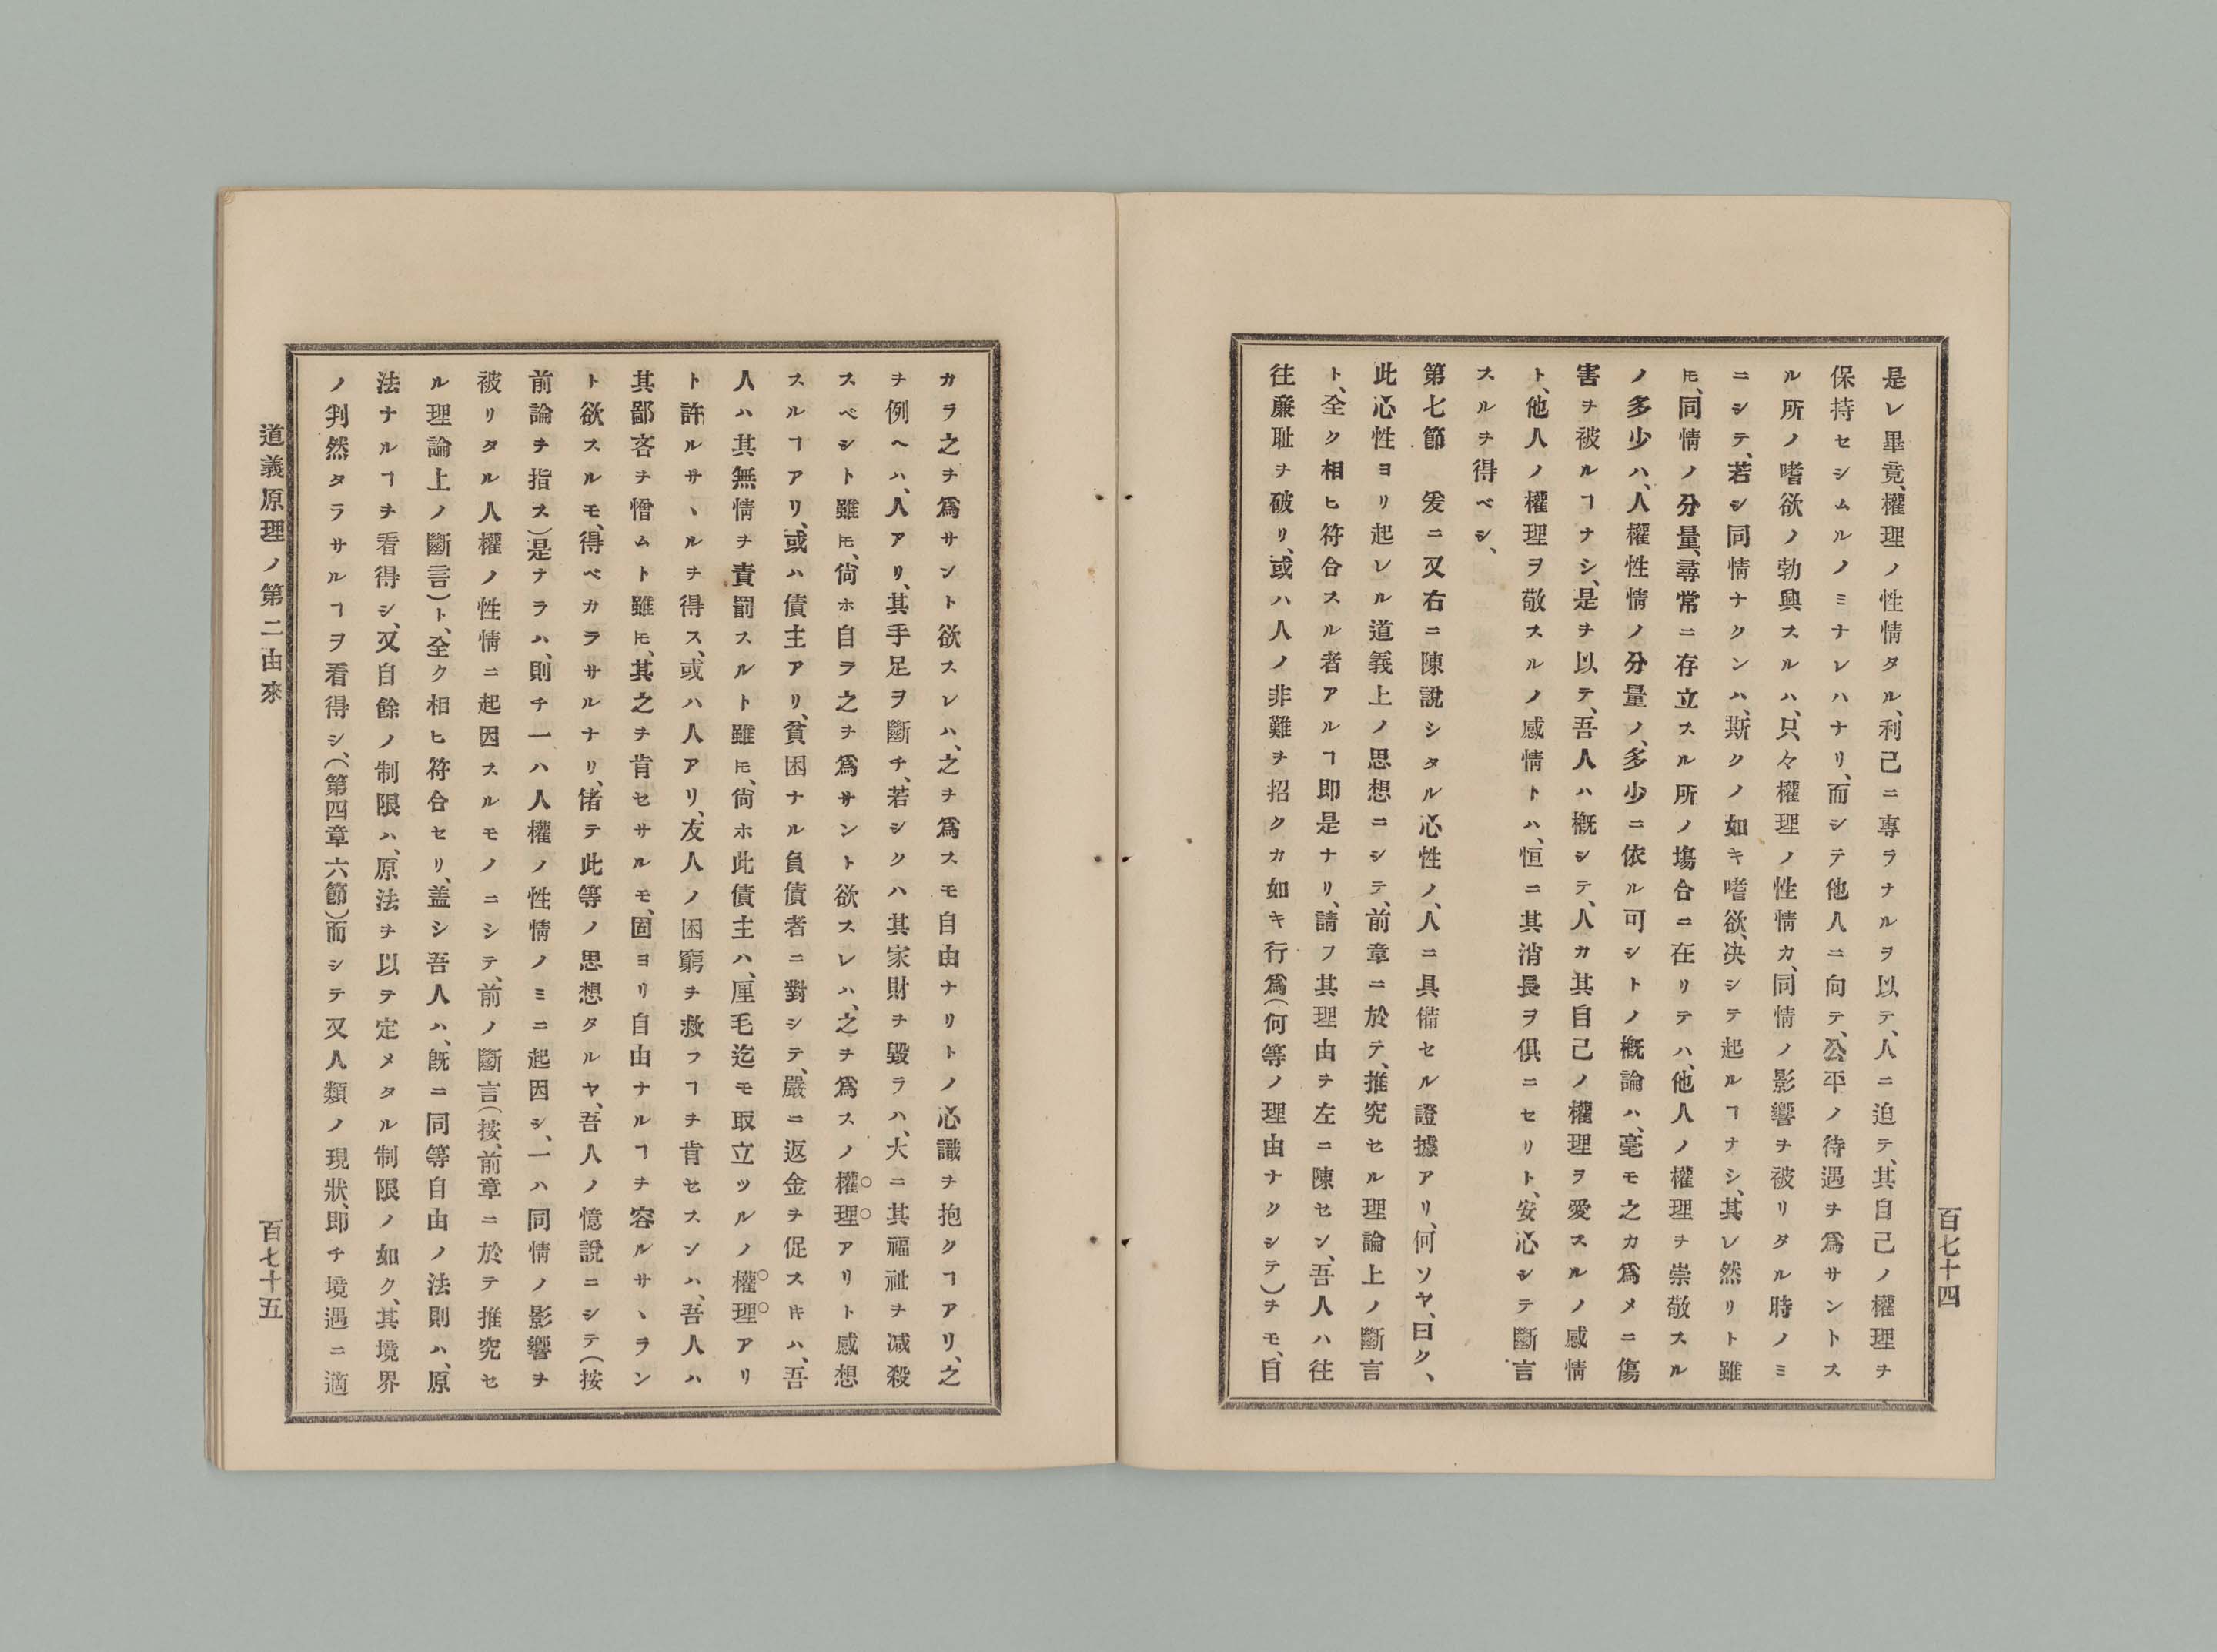 百七十四
是レ畢竟、權理ノ性情タル、利己ニ專ラナルヲ以テ、人ニ迫テ、其自己ノ權理ヲ
保持セシムルノミナレハナリ、而シテ他人ニ向テ、公平ノ待遇ヲ爲サントス
ル所ノ嗜欲ノ勃興スルハ、只々權理ノ性情カ、同情ノ影響ヲ被リタル時ノミ
ニシテ、若シ同情ナクンハ、斯クノ如キ嗜欲、决シテ起ルヿナシ、其レ然リト雖
𪜈、同情ノ分量、尋常ニ存立スル所ノ塲合ニ在リテハ、他人ノ權理ヲ崇敬スル
ノ多少ハ、人權性情ノ分量ノ、多少ニ依ル可シトノ概論ハ、毫モ之カ爲メニ傷
害ヲ被ルヿナシ、是ヲ以テ、吾人ハ概シテ、人カ其自己ノ權理ヲ愛スルノ感情
ト、他人ノ權理ヲ敬スルノ感情トハ、恒ニ其消長ヲ俱ニセリト、安心シテ斷言
スルヲ得ベシ、
第七節　爰ニ又右ニ陳說シタル心性ノ、人ニ具備セル證據アリ、何ソヤ、曰ク、
此心性ヨリ起レル道義上ノ思想ニシテ、前章ニ於テ、推究セル理論上ノ斷言
ト、全ク相ヒ符合スル者アルヿ即是ナリ、請フ其理由ヲ左ニ陳セン、吾人ハ往
往廉耻ヲ破リ、或ハ人ノ非難ヲ招クカ如キ行爲(何等ノ理由ナクシテ)ヲモ、自
カラ之ヲ爲サント欲スレハ、之ヲ爲スモ自由ナリトノ心識ヲ抱クヿアリ、之
ヲ例ヘハ、人アリ、其手足ヲ斷チ、若シクハ其家財ヲ毀ラハ、大ニ其福祉ヲ减殺
スベシト雖𪜈、尙ホ自ラ之ヲ爲サント欲スレハ、之ヲ爲スノ權理アリト感想
スルヿアリ、或ハ債主アリ、貧困ナル負債者ニ對シテ、嚴ニ返金ヲ促スキハ、吾
人ハ其無情ヲ責罰スルト雖𪜈、尙ホ此債主ハ、厘毛迄モ取立ツルノ權理アリ
ト許ルサヽルヲ得ス、或ハ人アリ、友人ノ困窮ヲ救フヿヲ肯セスンハ、吾人ハ
其鄙吝ヲ憎ムト雖𪜈、其之ヲ肯セサルモ、固ヨリ自由ナルヿヲ容ルサヽラン
ト欲スルモ、得ベカラサルナリ、偖テ此等ノ思想タルヤ、吾人ノ憶說ニシテ(按
前論ヲ指ス)是ナラハ、則チ一ハ人權ノ性情ノミニ起因シ、一ハ同情ノ影響ヲ
被リタル人權ノ性情ニ起因スルモノニシテ、前ノ斷言(按、前章ニ於テ推究セ
ル理論上ノ斷言)ト、全ク相ヒ符合セリ、盖シ吾人ハ、旣ニ同等自由ノ法則ハ、原
法ナルヿヲ看得シ、又自餘ノ制限ハ、原法ヲ以テ定メタル制限ノ如ク、其境界
ノ判然タラサルヿヲ看得シ、(第四章六節)而シテ又人類ノ現狀、即チ境遇ニ適
道義原理ノ第二由來
百七十五